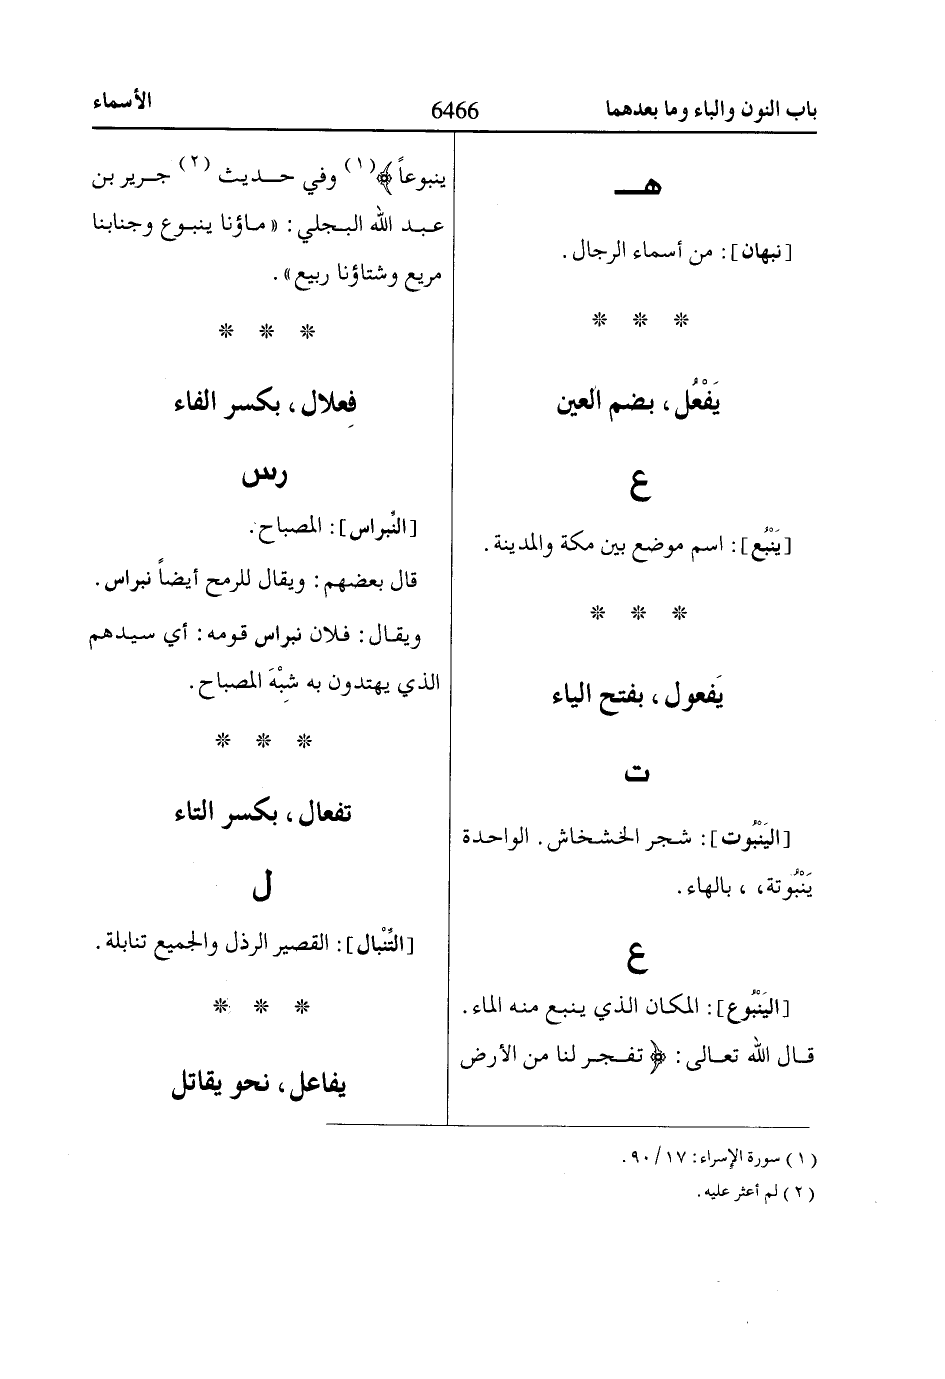 باب النون والباء وما بعدهما 6466 الأسماء
هـ
[نبهان]: من أسماء الرجال.
* * *
يَفْعُل، بضم العين
ع
[يَنْبُع]: اسم موضع بين مكة والمدينة.
* * *
يَفعول، بفتح الياء
ت
[اليَنْبُوت]: شجر الخشخاش. الواحدة
يَنْبُوتة، ، بالهاء.
ع
[اليَنْبُوع]: المكان الذي ينبع منه الماء.
قال الله تعالى: ﴿ تفجر لنا من الأرض
ينبوعاً﴾(١) وفي حديث (٢) جرير بن
عبد الله البجلي: «ماؤنا ينبوع وجنابنا
مريع وشتاؤنا ربيع».
* * *
فِعلال، بكسر الفاء
رس
[النِّبراس]: المصباح.
قال بعضهم: ويقال للرمح أيضاً نبراس.
ويقال: فلان نبراس قومه: أي سيدهم
الذي يهتدون به شِبْهَ المصباح.
* * *
تفعال، بكسر التاء
ل
[التِّنْبال]: القصير الرذل والجميع تنابلة.
* * *
يفاعل، نحو يقاتل
(١) سورة الإسراء: ١٧/ ٩٠.
(٢) لم أعثر عليه.